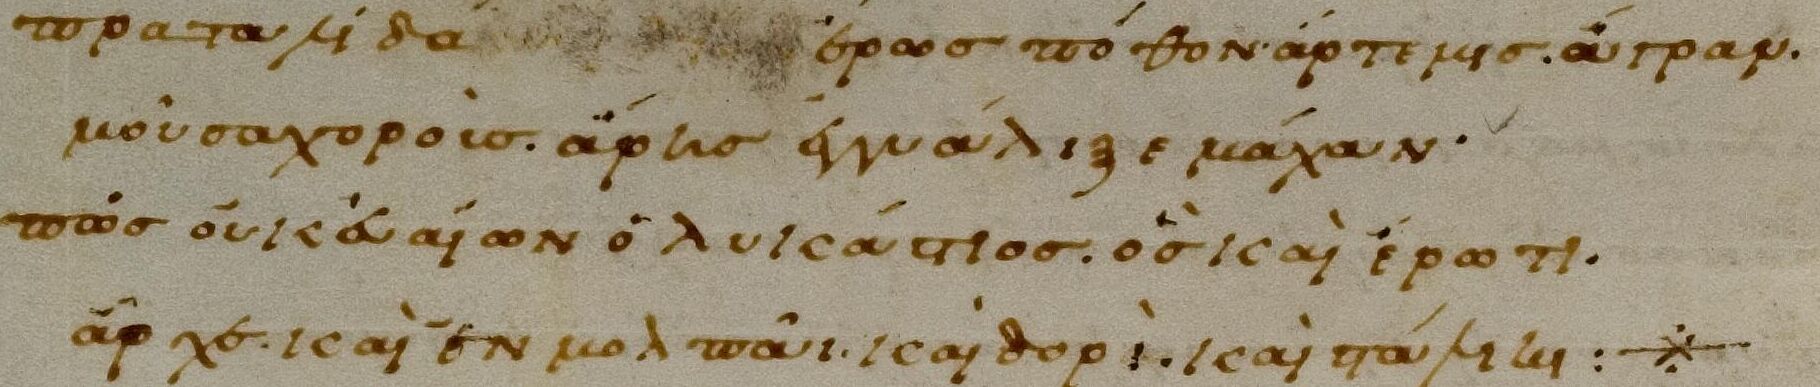 πραταλίδα ἔρωσ πόθον· ἄρτεμισ. ἄγραν.
μοῦσα χοροῖσ. ἄρησ ἐγγυάλιξε μάχαν·
πῶσ οὐκ εὐαίων ὁ λυκάστιοσ. ὃσ καὶ ἔρωτι.
ἆρχε. καὶ ἐν μολπᾶι. καὶ δορὶ. καὶ στάλικι :